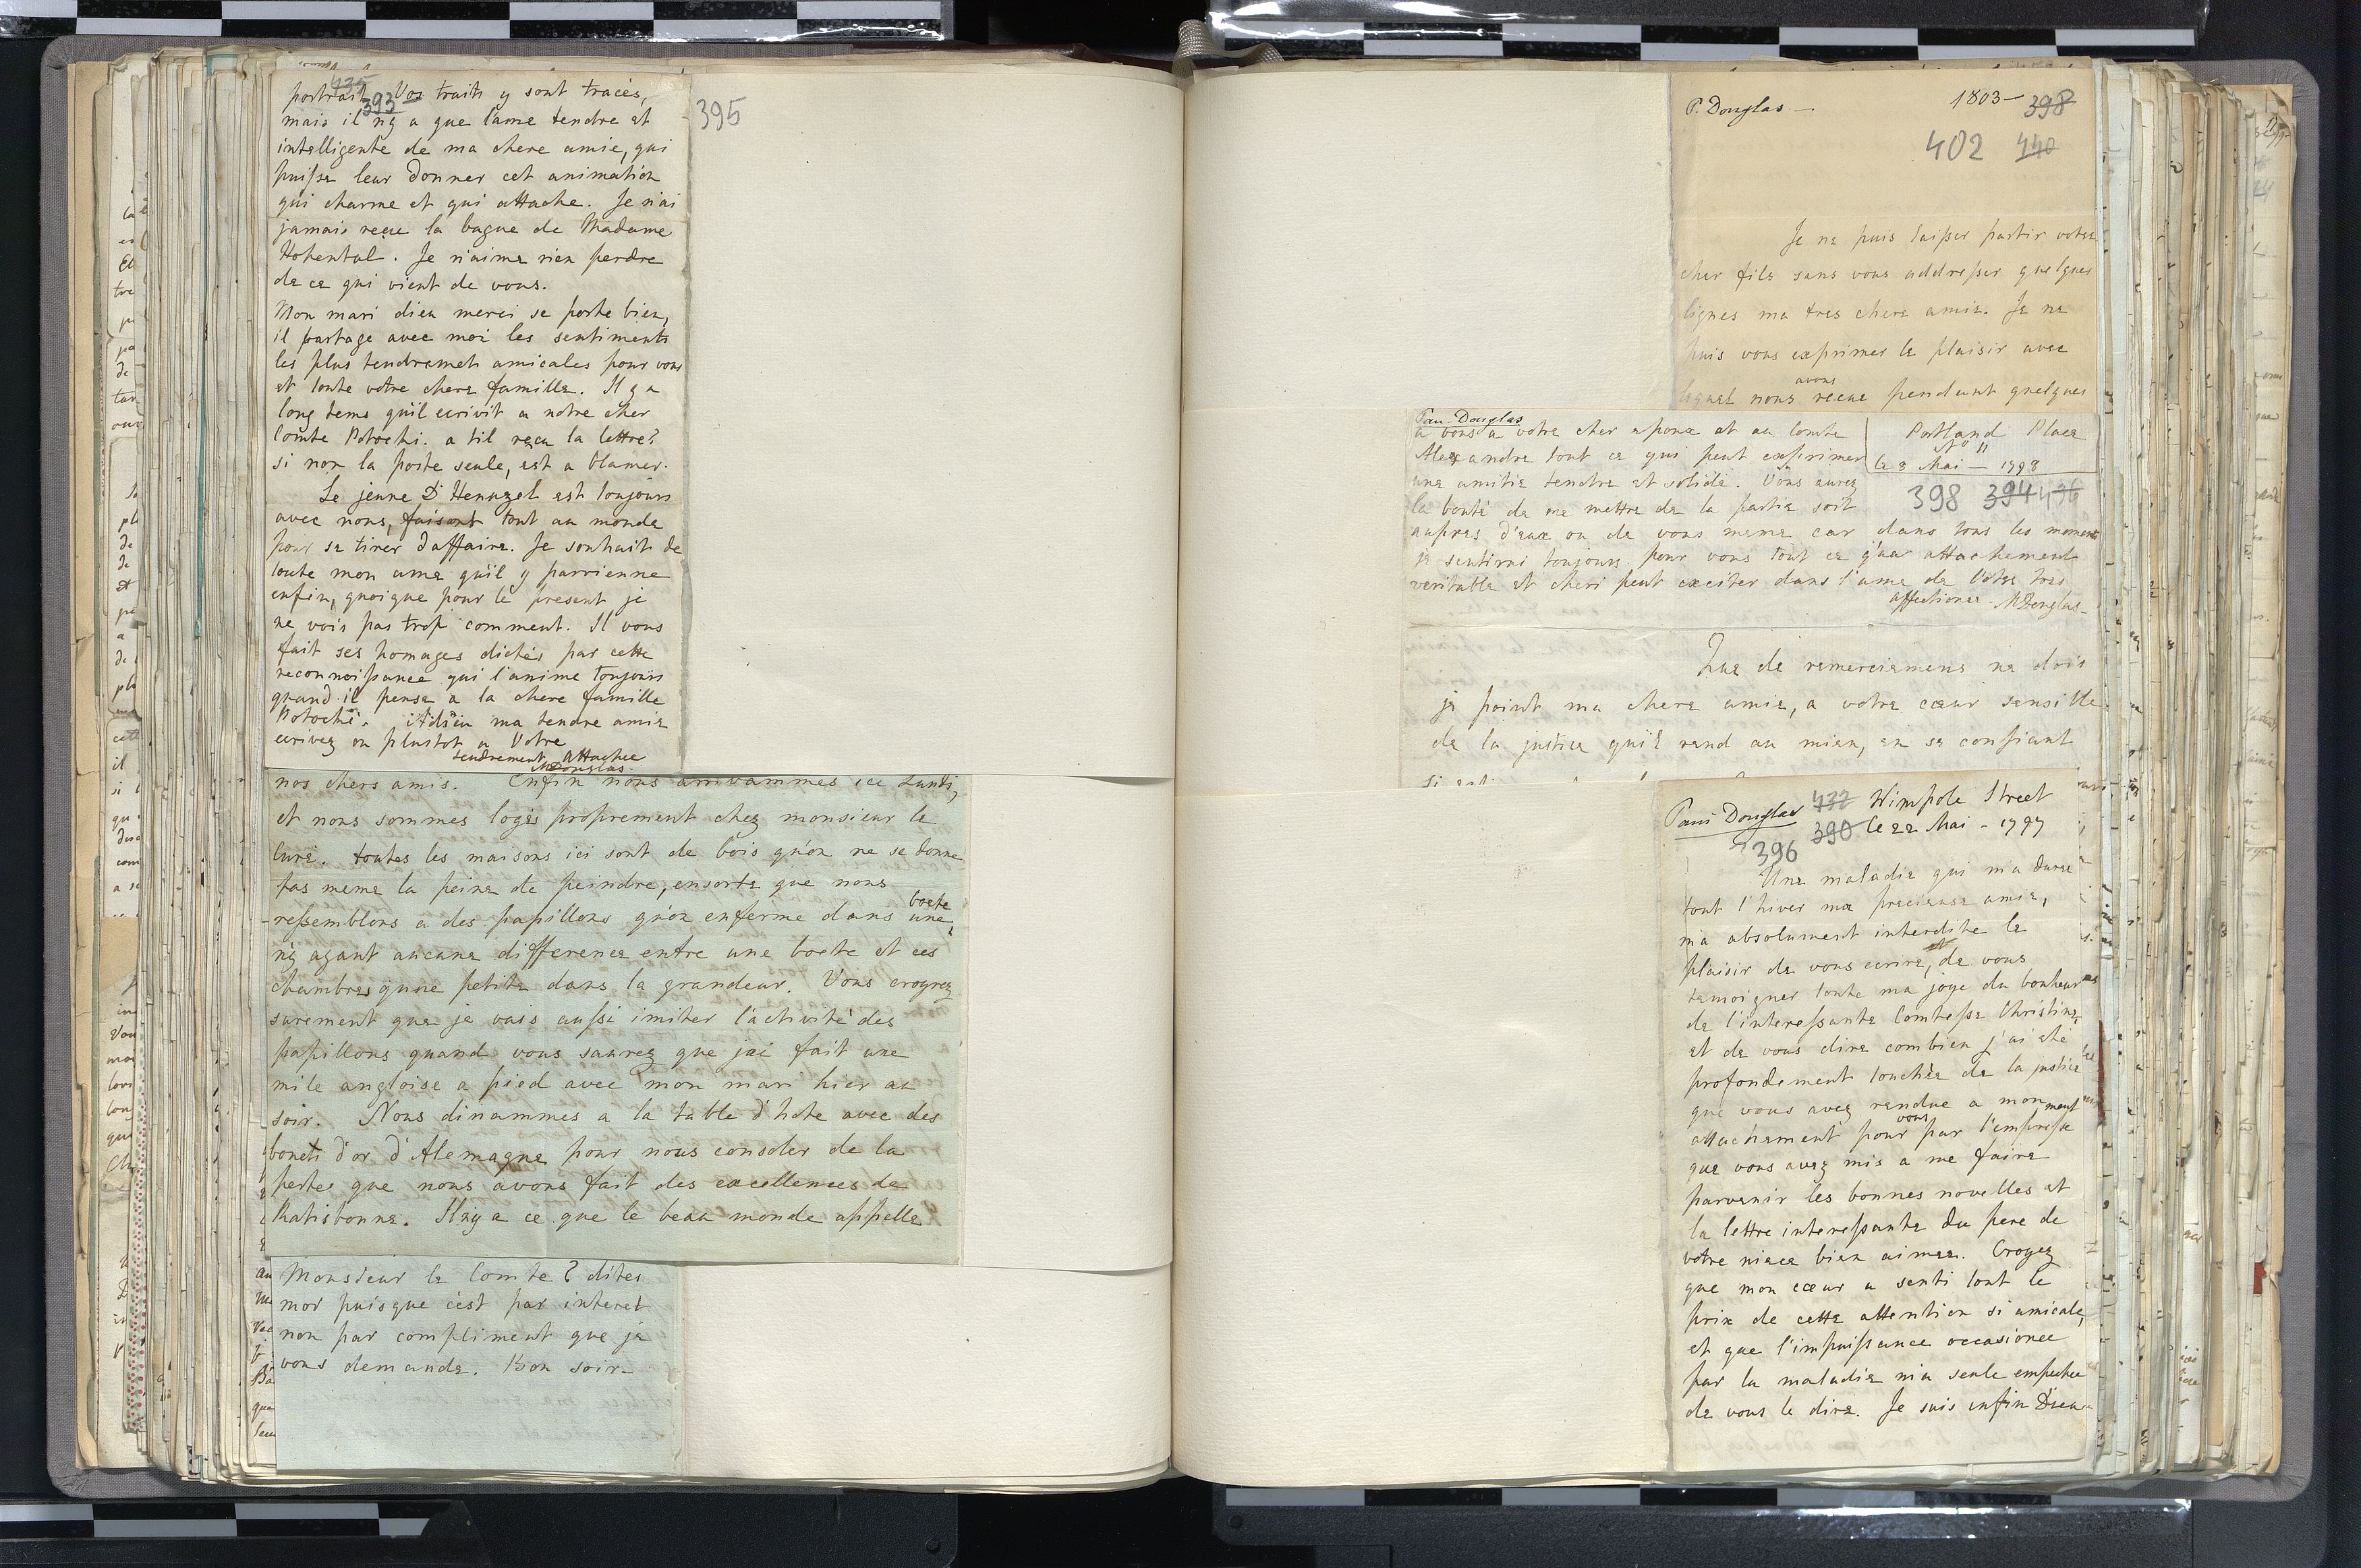 435
393
portrait. Vos traits y sont tracés,
mais il n'y a que l'ame tendre et
intelligente de ma chere amie, qui
puisse leur donner cet animation
qui charme et qui attache. Je n'ai
jamais reçue la bague de Madame
Hohental. Je n'aime rien perdre
de ce qui vient de vous.
Mon mari dieu merci se porte bien,
il partage avec moi les sentiments
les plus tendrement amicales pour vous
et toute votre chere famille. Il y a
long tems qu'il ecrivit a notre cher
Comte Potochi. a til reçu la lettre?
si non la poste seule, est a blamer.
Le jeune D'Hennezel est toujours
avec nous, faisant tout au monde
pour se tirer d'affaire. Je souhait de
toute mon ame qu'il y parvienne
enfin, quoique pour le present je
ne vois pas trop comment. Il vous
fait ses homages dictés par cette
reconnoissance qui l'anime toujours
quand il pense a la chere famille
Potochi. Adieu ma tendre amie
ecrivez au plustot a Votre
tendrement attachee
MDouglas.
395
nos chers amis. Enfin nous arrivammes ice Lundi,
et nous sommes logés proprement chez monsieur le
Curé. toutes les maisons ici sont de bois qu'on ne se donne
pas meme la peine de peindre, ensorte que nous
ressemblons a des papillons qu'on enferme dans une boete,
n'y ayant aucune difference entre une boete et ces
chambres qu'une petite dans la grandeur. Vous croyrez
surement que je vais aussi imiter l'activité des
papillons quand vous saurez que j'ai fait une
mile angloise a pied avec mon mari hier au
soir. Nous dinammes a la table d'hote avec des
bonets d'or d'Alemagne pour nous consoler de la
pertee que nous avons fait des excellences de
Ratisbonne. Il n'y a ce que le beau monde appelle
Monsieur le Comte? dites
moi puisque c'est par interet
non par compliment que je
vous demande. Bon soir.
P. Douglas —
1803 — 398
402 440
Je ne puis laisser partir votre
cher fils sans vous addresser quelques
lignes ma tres chere amie. Je ne
puis vous exprimer le plaisir avec
lequel nous avons recue pendant quelques
Pau. Douglas
a vous a votre cher epoux et au Comte
Alexandre tout ce qui peut exprimer
une amitie tendre et solide. Vous aurez
la bonté de me mettre de la partie soit
Portland Place
No 11
le 8 Mai — 1798
398 394 436
aupres d'eux ou de vous meme car dans tous les moments
je sentirai toujours pour vous tout ce q'un attachement
veritable et cheri peut exciter dans l'ame de Votre tres
affectionee MDouglas
Que de remerciemens ne dois
je point ma chere amie, a votre cœur sensible
de la justice qu'il rend au mien, en se confiant
Pani Douglas 432 Wimpole Street
390 le 22 Mai - 1797
396
Une maladie qui m'a durée
tout l'hiver ma precieuse amie,
m'a absolument interdite le
plaisir de vous ecrire, et de vous
temoigner toute ma joye du bonheur
de l'interessante Comtesse Christine,
et de vous dire combien j'ai eté
profondement touchée de la justice
que vous avez rendue a mon
attachement pour vous par l'empressement
que vous avez mis a me faire
parvenir les bonnes novelles et
la lettre interessante du pere de
votre niece bien aimee. Croyez
que mon cœur a senti tout le
prix de cette attention si amicale,
et que l'impuissance occasionee
par la maladie m'a seule empechee
de vous le dire. Je suis enfin Dieu